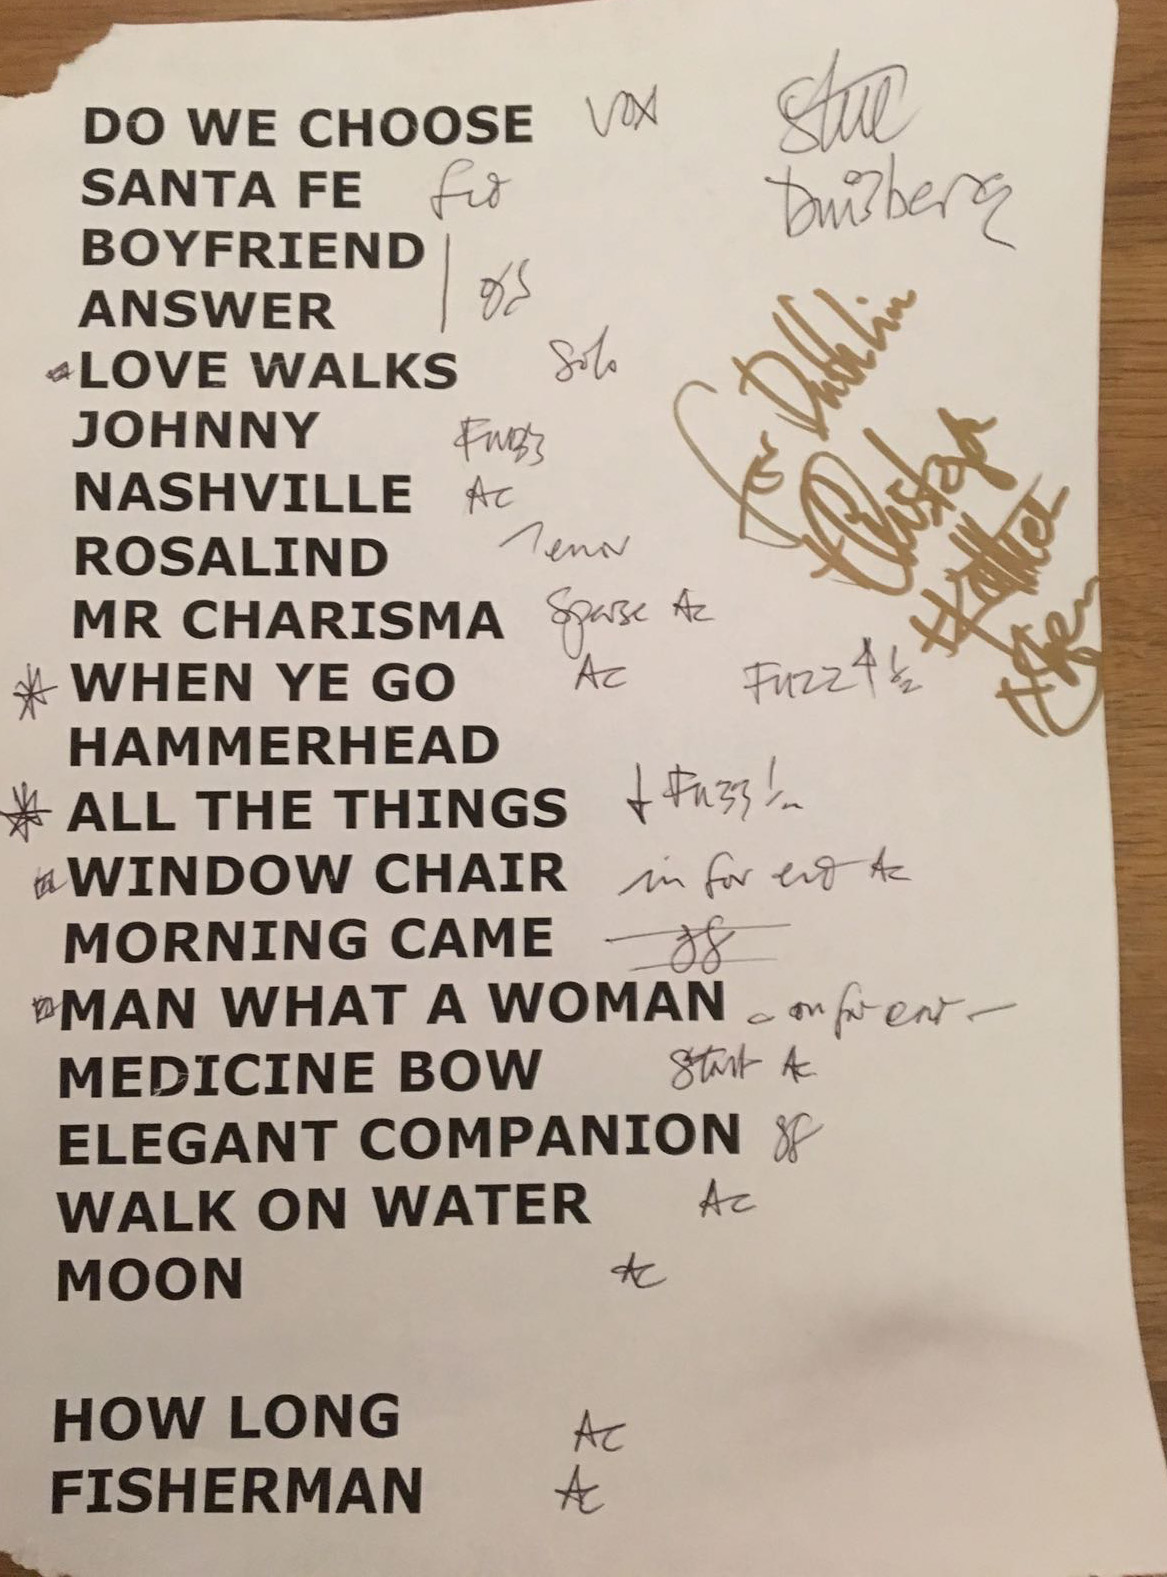 DO WE CHOOSE VOX
SANTA FE
BOYFRIEND
ANSWER
LOVE WALKS Solo
JOHNNY Fuzz
NASHVILLE Ac
ROSALIND Tenor
MR CHARISMA Sparse Ac
WHEN YE GO Ac Fuzz 4 1/2
HAMMERHEAD
ALL THE THINGS Fuzz
WINDOW CHAIR in for end Ac
MORNING CAME
MAN WHAT A WOMAN
MEDICINE BOW Start Ac
ELEGANT COMPANION
WALK ON WATER Ac
MOON Ac
HOW LONG Ac
FISHERMAN Ac
Duisberg
for